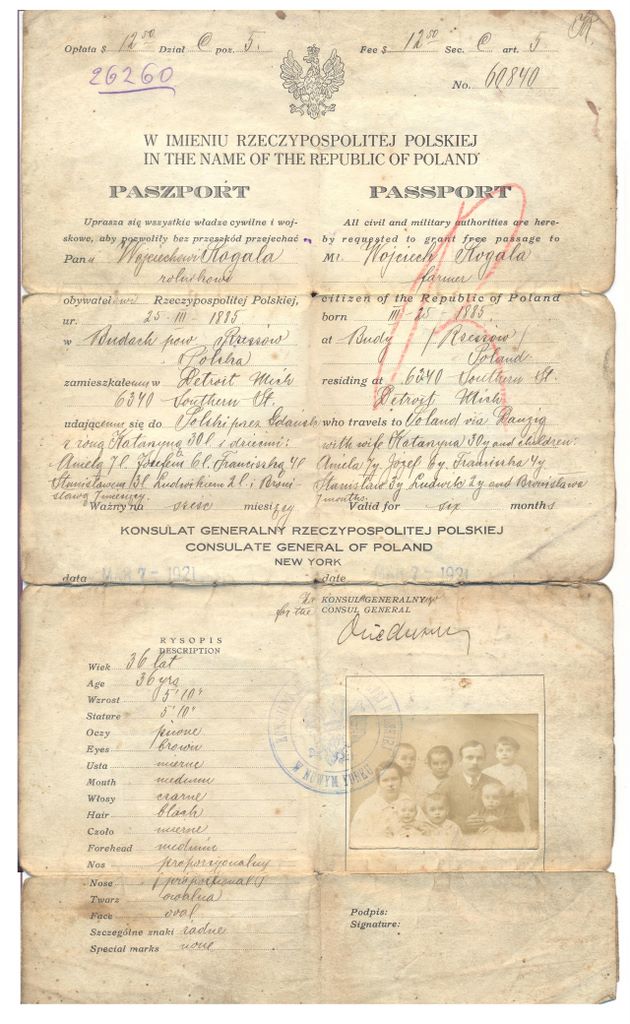 Opłata $ 12 50 Dział C poz. 5. Fee $ 12 50 Sec. C art. 5
26260
No. 60840
W IMIENIU RZECZYPOSPOLITEJ POLSKIEJ
IN THE NAME OF THE REPUBLIC OF POLAND
PASZPORT PASSPORT
Uprasza się wszystkie władze cywilne i woj-
skowe, aby pozwoliły bez przeszkód przejechać
Panu Wojciechowi Kogala
rolnikowi
obywatelowi Rzeczypospolitej Polskiej,
ur. 25-III-1885
w Budach pow. Rzeszów
Polska
zamieszkałemu w Detroit Mich
6340 Southern St.
udającemu się do Polski przez Gdańsk
z żoną Katarzyną 30 l. i dziećmi:
Aniela 7 l. Józefem 6 l. Franciszką 4 l
Stanisławem 3 l. Ludwikiem 2 l. i Broni-
sławą 7 miesięcy.
Ważny na sześć miesięcy
All civil and military authorities are here-
by requested to grant free passage to
Mr. Wojciech Kogala
farmer
citizen of the Republic of Poland
born III-25-1885.
at Budy (Rzeszów)
Poland
residing at 6340 Southern St.
Detroit Mich
who travels to Poland via Danzig
with wife Katarzyna 30 y and children:
Aniela 7y Józef 6y Franciszka 4y
Stanisław 3y Ludwik 2y and Bronisława
7 months.
Valid for six months
KONSULAT GENERALNY RZECZYPOSPOLITEJ POLSKIEJ
CONSULATE GENERAL OF POLAND
NEW YORK
data MAR 7 - 1921 date MAR 7 - 1921
KONSUL GENERALNY
for the CONSUL GENERAL
RYSOPIS
DESCRIPTION
Wiek 36 lat
Age 36 yrs
Wzrost 5' 10"
Stature 5' 10"
Oczy piwne
Eyes brown
Usta mierne
Mouth medium
Włosy czarne
Hair black
Czoło mierne
Forehead medium
Nos proporcjonalny
Nose (proportional)
Twarz owalna
Face oval
Szczególne znaki żadne
Special marks none
W NOWYM YORKU
Podpis:
Signature: